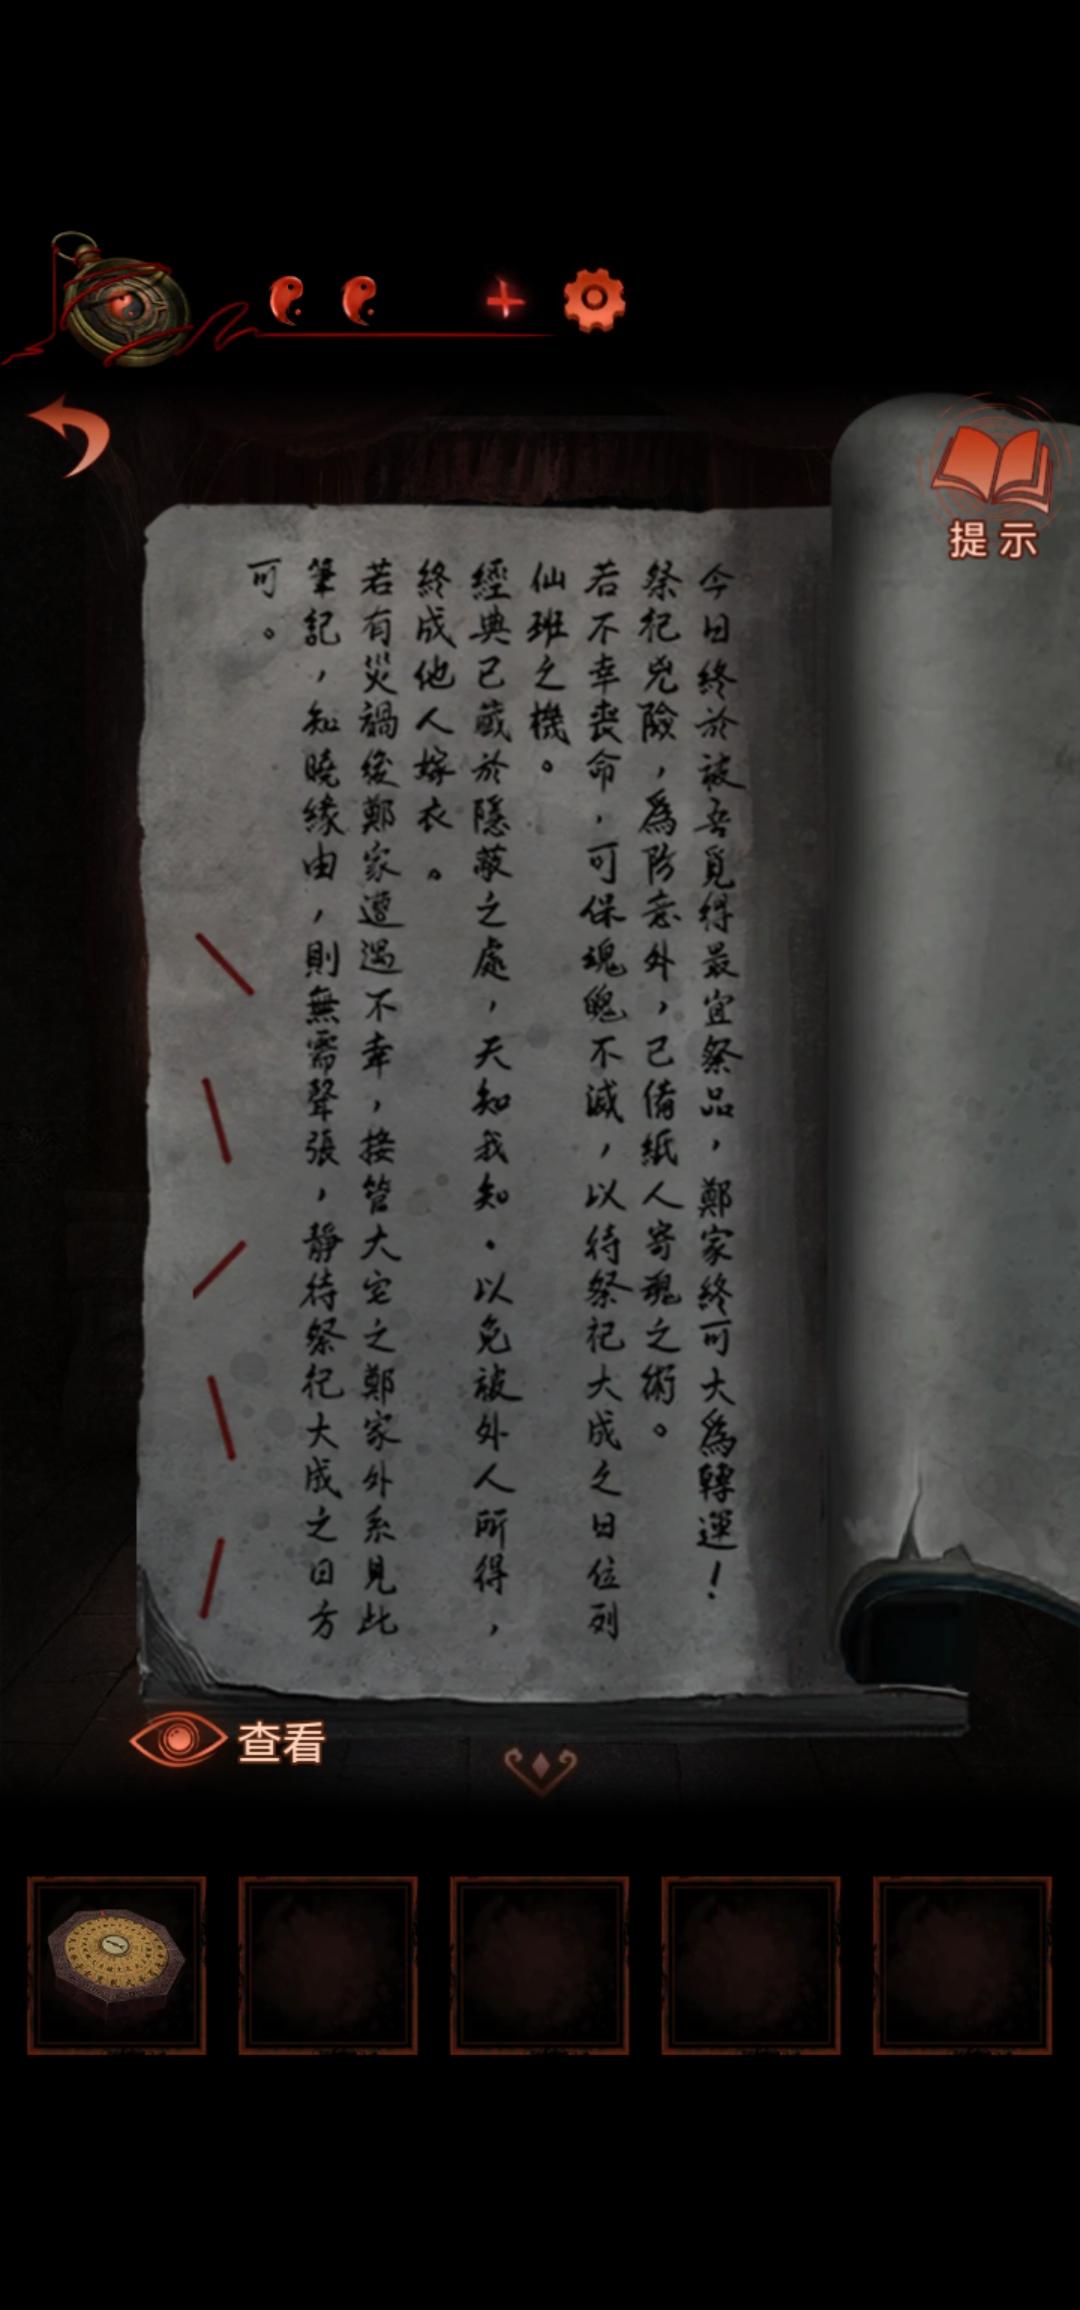 提示
今日終於被吾覓得最宜祭品，鄭家終可大爲轉運！
祭祀兇險，爲防意外，已備紙人寄魂之術。
若不幸喪命，可保魂魄不滅，以待祭祀大成之日位列
仙班之機。
經典已藏於隱蔽之處，天知我知。以免被外人所得，
終成他人嫁衣。
若有災禍後鄭家遭遇不幸，接管大宅之鄭家外系見此
筆記，知曉緣由，則無需聲張，靜待祭祀大成之日方
可。
查看